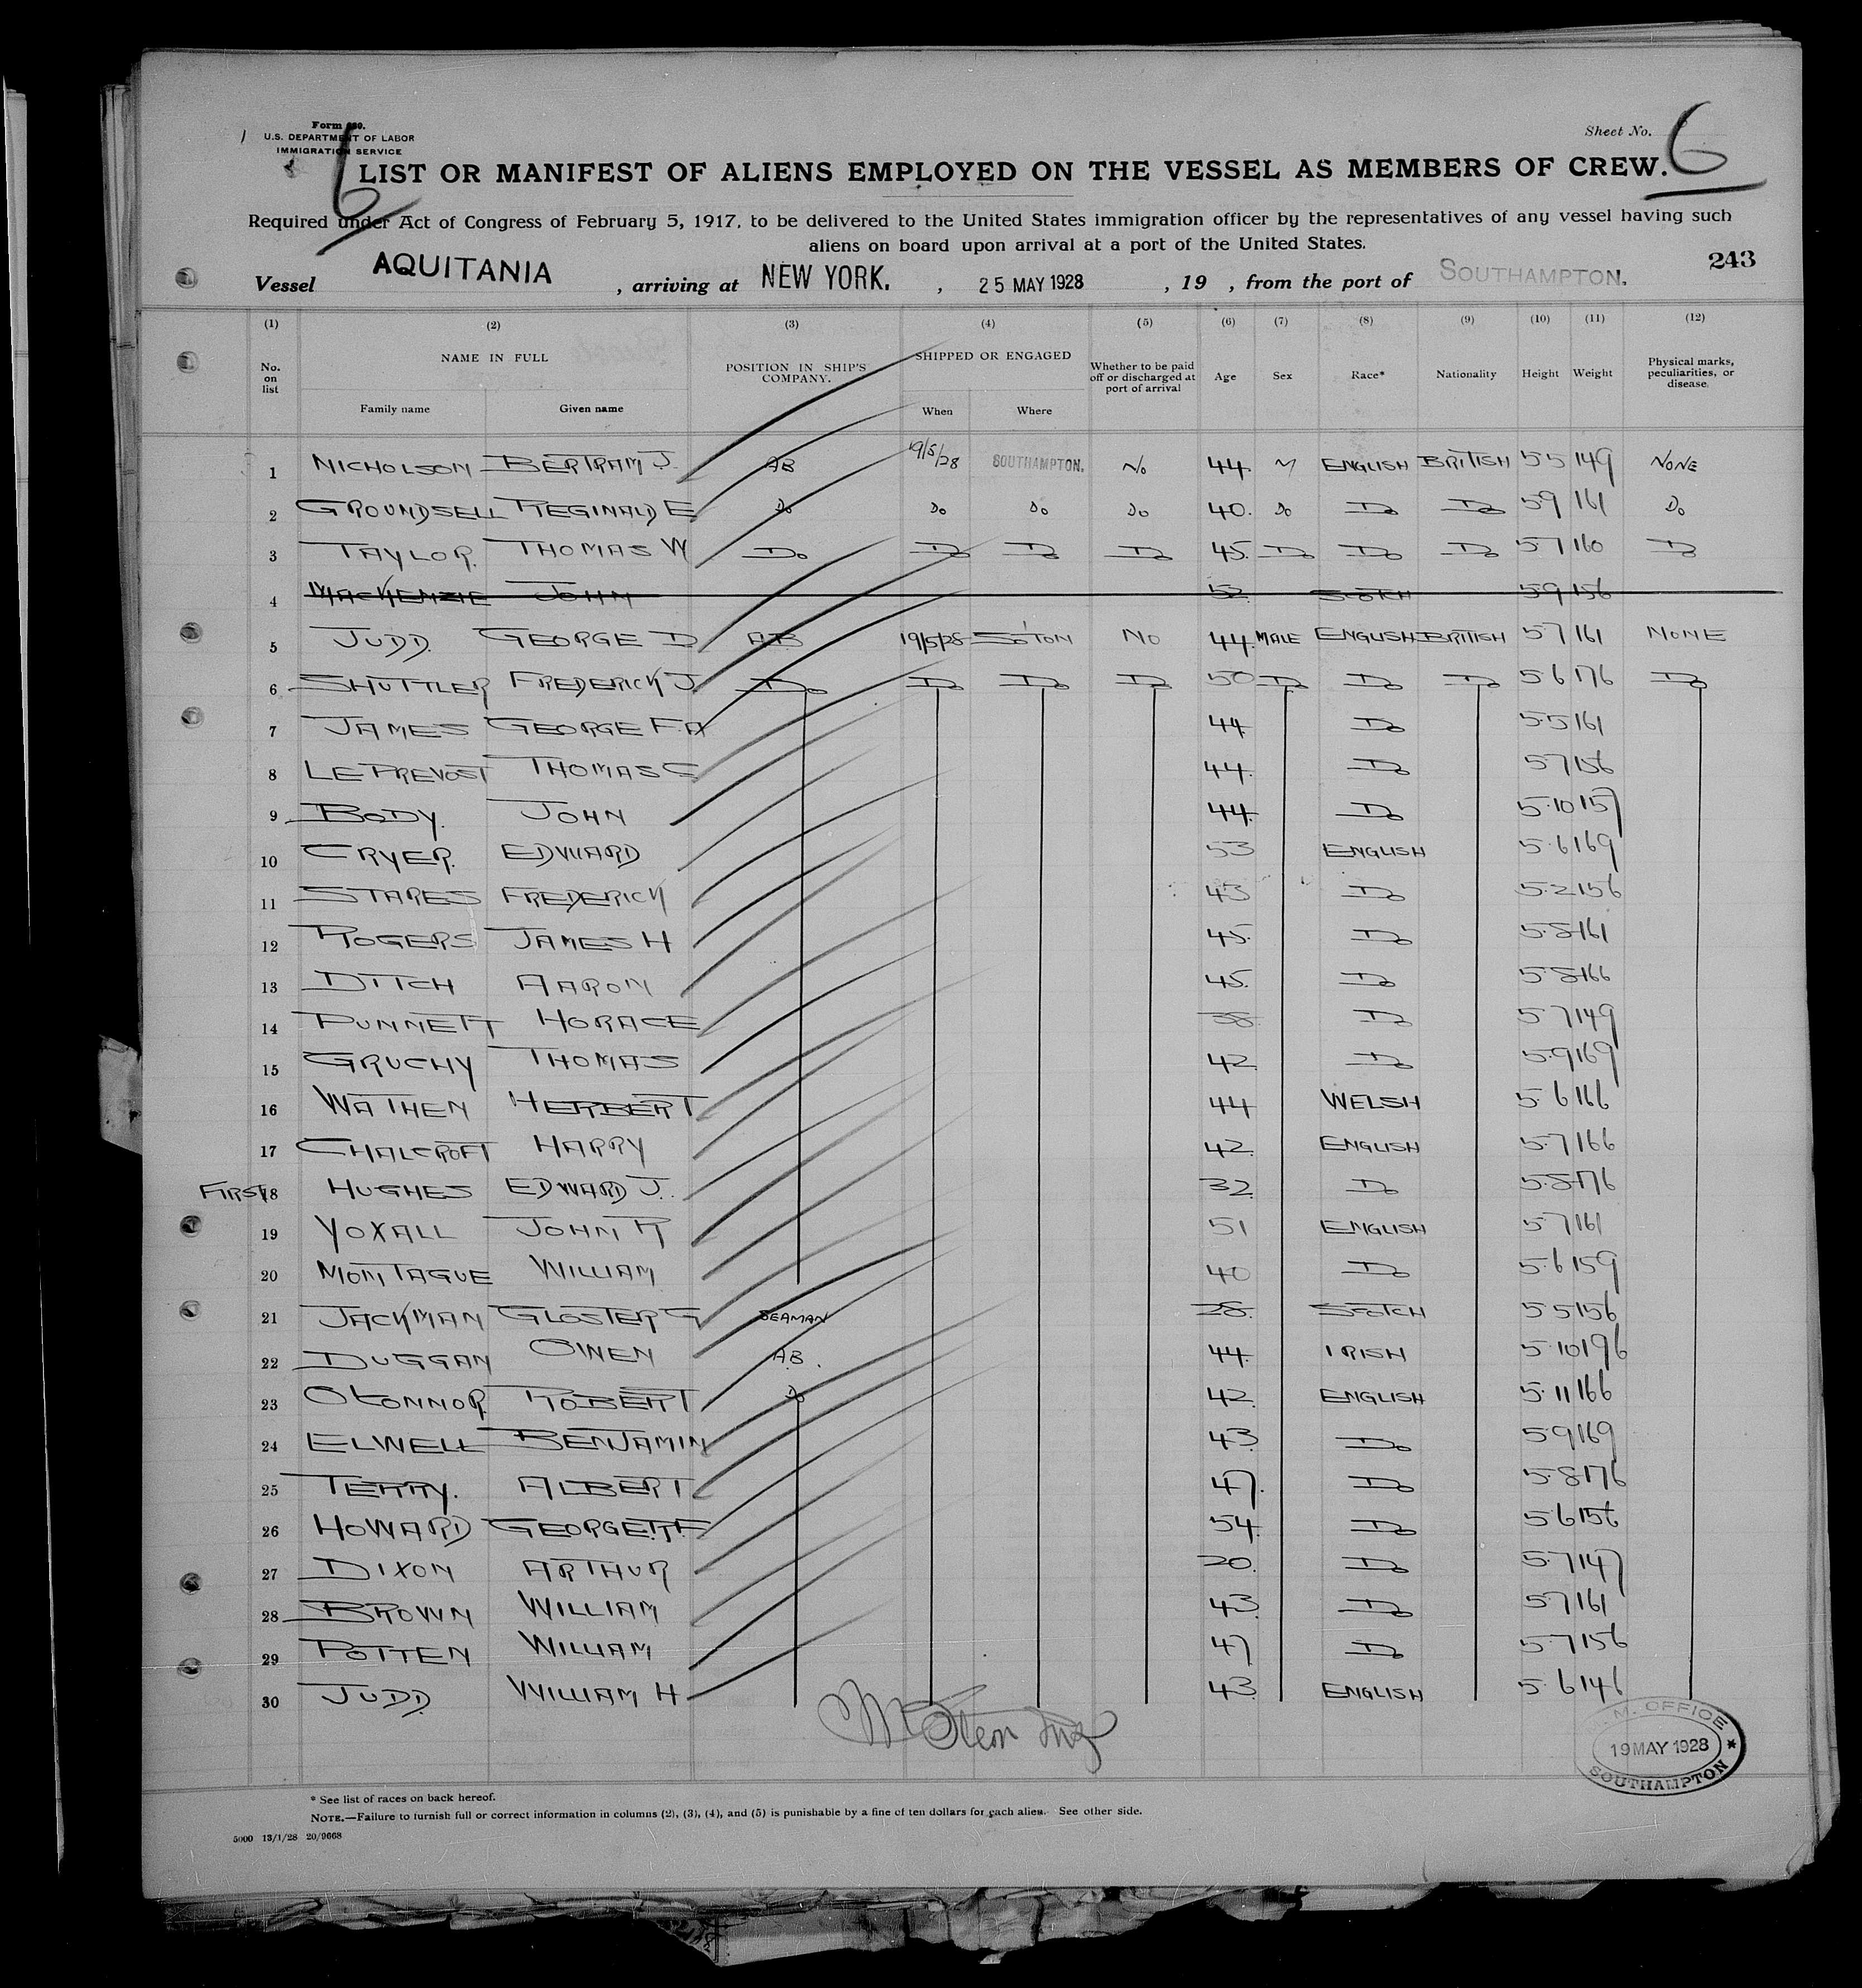 Form 680.
U.S. DEPARTMENT OF LABOR
IMMIGRATION SERVICE
Sheet No. 6
6
LIST OR MANIFEST OF ALIENS EMPLOYED ON THE VESSEL AS MEMBERS OF CREW.
Required under Act of Congress of February 5, 1917, to be delivered to the United States immigration officer by the representatives of any vessel having such
aliens on board upon arrival at a port of the United States.
243
Vessel AQUITANIA , arriving at NEW YORK. , 25 MAY 1928 , 19 , from the port of SOUTHAMPTON.
(1) (2) (3) (4) (5) (6) (7) (8) (9) (10) (11) (12)
No. on list NAME IN FULL POSITION IN SHIP'S COMPANY. SHIPPED OR ENGAGED Whether to be paid off or discharged at port of arrival Age Sex Race* Nationality Height Weight Physical marks, peculiarities, or disease.
Family name Given name When Where
1 NICHOLSON BERTRAM J. AB 19/5/28 SOUTHAMPTON. No 44 M ENGLISH BRITISH 5 5 149 NONE
2 GROUNDSELL REGINALD E Do Do Do Do 40. Do Do Do 5 9 161 Do
3 TAYLOR. THOMAS W Do Do Do Do 45. Do Do Do 5 7 160 Do
4 MACKENZIE JOHN 52 SCOTCH 5 9 156
5 JUDD. GEORGE D AB 19/5/28 SO'TON NO 44. MALE ENGLISH BRITISH 5 7 161 NONE
6 SHUTTLER FREDERICK J. Do Do Do Do 50 Do Do Do 5 6 176 Do
7 JAMES GEORGE F.A 44 Do 5 5 161
8 LE PREVOST THOMAS C 44. Do 5 7 156
9 BODY. JOHN 44. Do 5.10 157
10 CRYER. EDWARD 53 ENGLISH 5.6 169
11 STARES FREDERICK 43 Do 5.2 156
12 ROGERS JAMES H 45. Do 5.8 161
13 DITCH AARON 45. Do 5.8 166
14 PUNNETT HORACE 38 Do 5 7 149
15 GRUCHY THOMAS 42 Do 5.9 169
16 WATHEN HERBERT 44 WELSH 5.6 166
17 CHALCROFT HARRY 42 ENGLISH 5.7 166
FIRST 18 HUGHES EDWARD J. 32 Do 5.8 176
19 YOXALL JOHN R 51 ENGLISH 5 7 161
20 MONTAGUE WILLIAM 40 Do 5.6 159
21 JACKMAN GLOSTER G SEAMAN 28. SCOTCH 5 5 156
22 DUGGAN OWEN A.B. 44. IRISH 5.10 196
23 O'CONNOR. ROBERT Do 42 ENGLISH 5.11 166
24 ELWELL BENJAMIN 43 Do 5 9 169
25 TERRY. ALBERT 47. Do 5.8 176
26 HOWARD GEORGE 54. Do 5 6 156
27 DIXON ARTHUR 20. Do 5.7 147
28 BROWN WILLIAM 43 Do 5 7 161
29 POTTEN WILLIAM 47 Do 5.7 156
30 JUDD. WILLIAM H 43 ENGLISH 5.6 146
M. OFFICE
19 MAY 1928
SOUTHAMPTON *
* See list of races on back hereof.
NOTE.—Failure to furnish full or correct information in columns (2), (3), (4), and (5) is punishable by a fine of ten dollars for each alien. See other side.
5000 13/1/28 20/9668